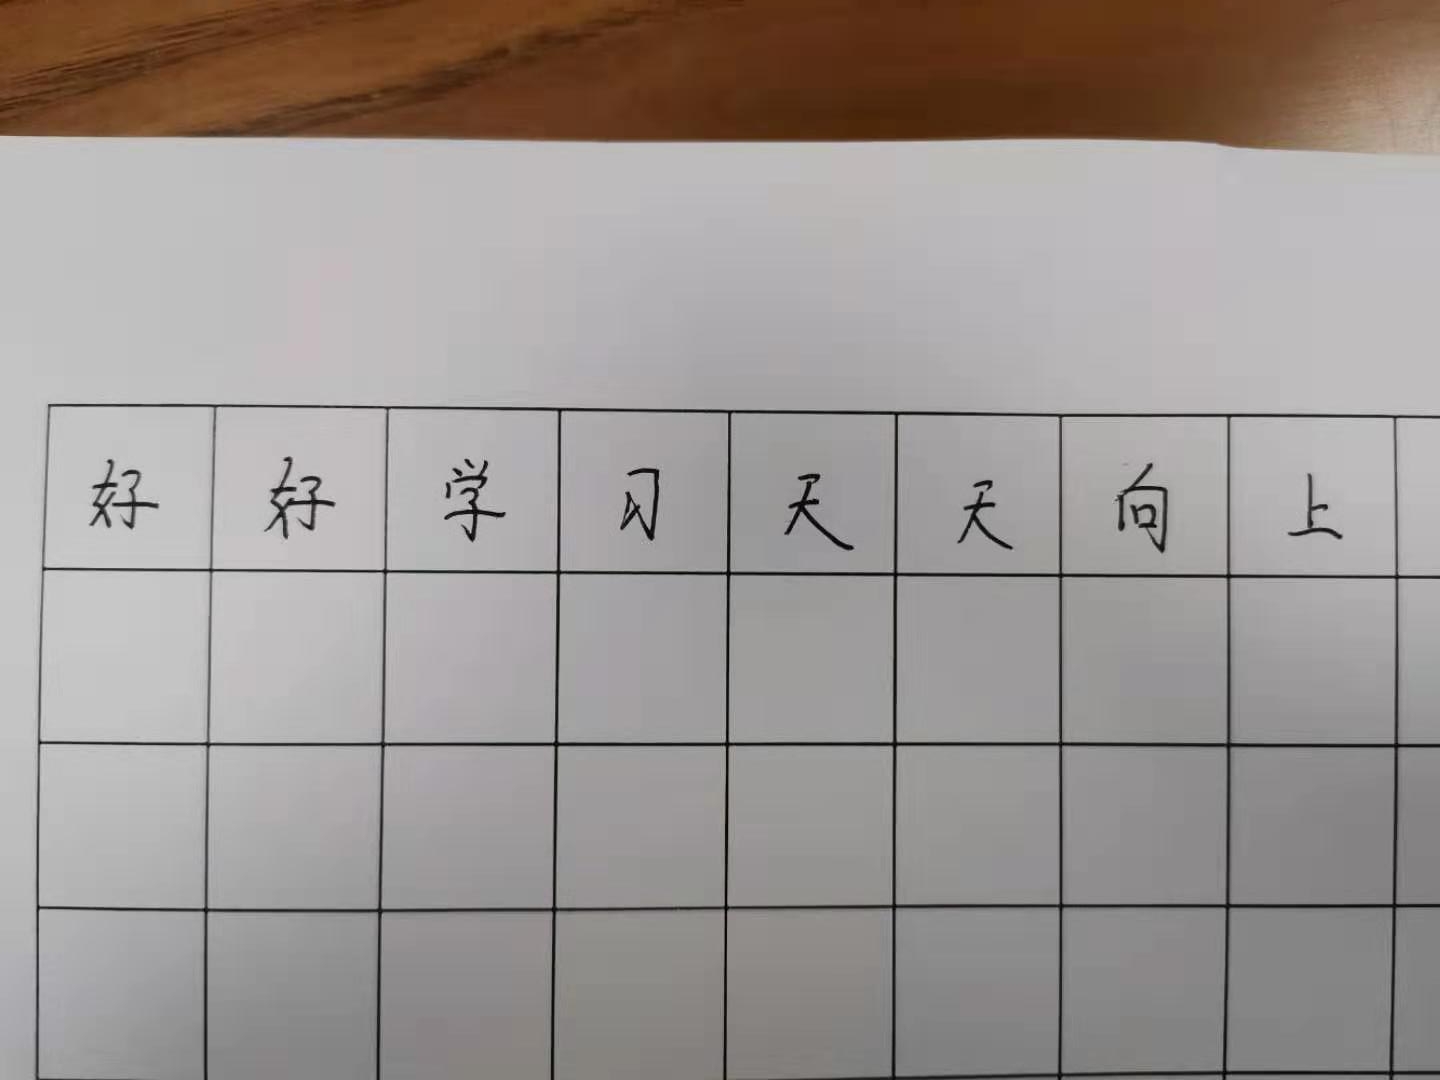 好好学习天天向上